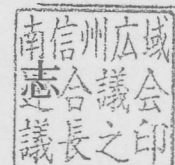 南信州広域
連合議会
議長之印